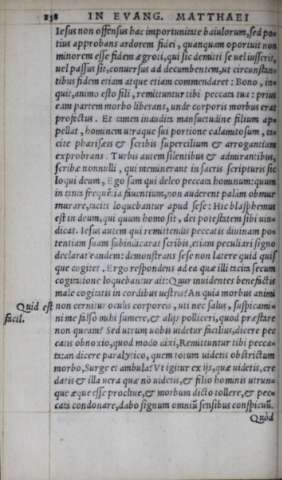 238 IN EVANG. MATTHAEI
Iesus non offensus hac importunitate baiulorum, sed po-
tius approbans ardorem fidei, quanquam oportuit non
minorem esse fidem ægroti, qui sic demitti se uel iusserit,
uel passus sit, conuersus ad decumbentem, ut circunstan-
tibus fidem etiam atque etiam commendaret: Bono, in-
quit, animo esto fili, remittuntur tibi peccata tua: prius
eam partem morbo liberans, unde corporis morbus erat
profectus. Et tamen inaudita mansuetudine filium ap-
pellat, hominem utraque sui portione calamitosum,
cite pharisæis & scribis supercilium & arrogantiam
exprobrans. Turbis autem silentibus & admirantibus,
scribæ nonnulli, qui meminerant in sacris scripturis sic
loqui deum, Ego sum qui deleo peccata hominum: quum
in eius frequētia fiuuntium, non auderent palàm obmur
murare, taciti loquebantur apud sese: Hic blasphemus
est in deum, qui quum homo sit, dei potestatem sibi uin-
dicat. Iesus autem qui remittendis peccatis diuinam po-
tentiam suam subindicarat scribis, etiam peculiari signo
declarat eandem: demonstrans sese non latere quid quisque
cogitet. Ergo respondens ad ea quæ illi tacita secum
cogitatione loquebantur ait: Quur inuidentes beneficijs
male cogitatis in cordibus uestris? An quia morbus animi
Quid est non cernitur oculis corporeis, uti nec salus, suspicami-
facil. ni me falso mihi sumere, & alijs polliceri, quod præstare
non queam? Sed utrum uobis uidetur facilius, dicere pec-
catis obnoxio, quod modò dixi, Remittuntur tibi pecca-
ta: an dicere paralytico, quem totum uidetis obstrictum
morbo, Surge et ambula? Vt igitur ex ijs, quæ uidetis, cre
datis & illa uera quæ nō uidetis, & filio hominis utrun-
que æque esse procliue, & morbum dicto tollere, & pec-
cata condonare, dabo signum omniū sensibus conspicuū.
Quòd